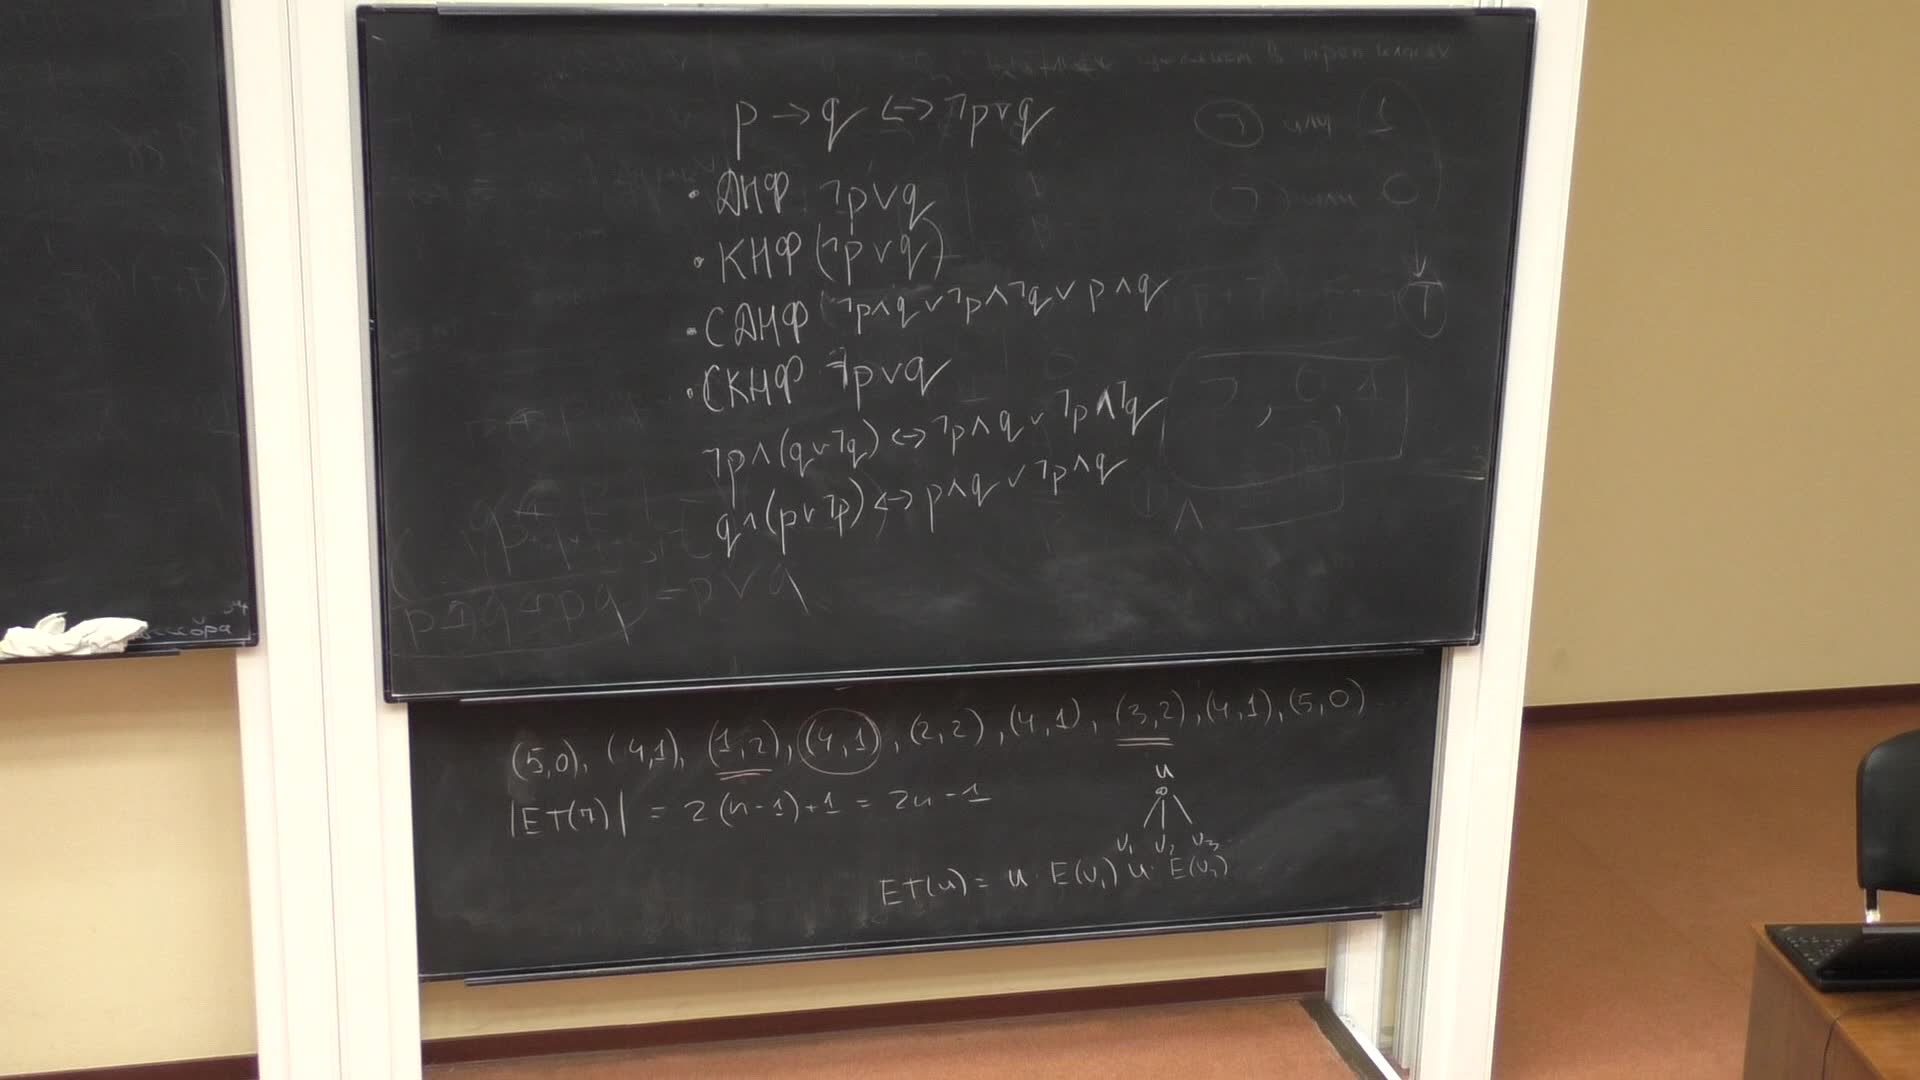 p → q ↔ ¬p∨q
• ДНФ ¬p∨q
• КНФ (¬p∨q)
• СДНФ ¬p∧q∨¬p∧¬q∨p∧q
• СКНФ ¬p∨q
¬p∧(q∨¬q) ↔ ¬p∧q∨¬p∧¬q
q∧(p∨¬p) ↔ p∧q∨¬p∧q
или 1
или 0
T
∧
= p∨q
(5,0), (4,1), (1,2), (4,1), (2,2), (4,1), (3,2), (4,1), (5,0)
|ET(7)| = 2(n-1)+1 = 2n-1
u
v₁ v₂ v₃
ET(u) = u E(v₁) u E(v₂)